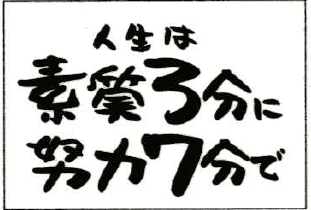 人生は
素質3分に
努力7分で